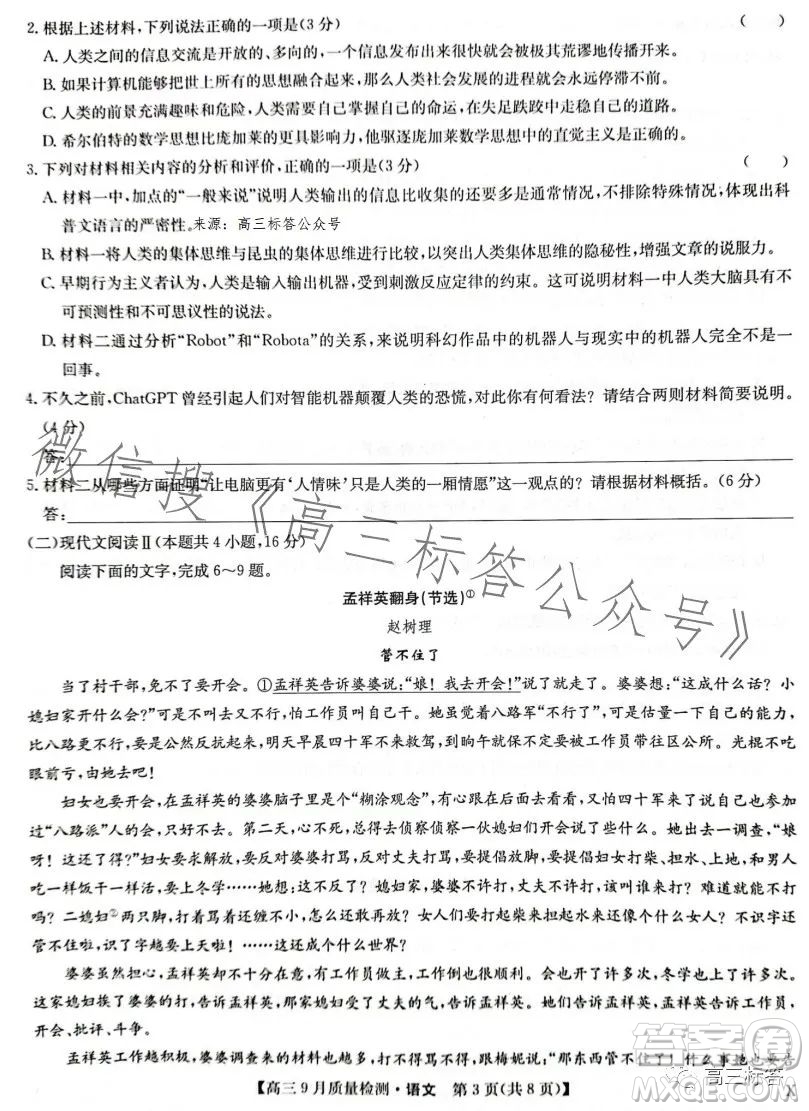 2. 根据上述材料,下列说法正确的一项是(3 分) ( )
A. 人类之间的信息交流是开放的、多向的,一个信息发布出来很快就会被极其荒谬地传播开来。
B. 如果计算机能把世上所有的思想融合起来,那么人类社会的发展进程就会永远停滞不前。
C. 人类的前景充满趣味和危险,人类只有自己掌握自己的命运,在失足跌跤中走自己的道路。
D. 希尔伯特的数学思想比庞加莱的更具影响力,他驱逐庞加莱数学思想中的直觉主义是正确的。
3. 下列对材料相关内容的分析和评价,正确的一项是(3 分) ( )
A. 材料一中,加点的“一般来说”说明人类输出的信息比收集的还要多,但不排除特殊情况,体现出科
普文语言的严密性。来源：高三标答公众号
B. 材料一将人类的集体思维与昆虫的集体思维进行比较,以突出人类集体思维的隐秘性,增强文章的说服力。
C. 早期行为主义者认为,人类是输入输出机器,受到刺激反应定律的约束。这可以说明材料一中人类大脑具有不
可预测性和不可思议性的说法。
D. 材料二通过分析“Robot”和“Robota”的关系,来说明科幻作品中的机器人与现实中的机器人完全不是一
回事。
4. 不久之前,ChatGPT 曾经引起人们对智能机器颠覆人类的恐慌,对此你有何看法？请结合两则材料简要说明。
(4 分)
答:
5. 材料二从哪些方面证明“让电脑更有‘人情味’只是人类的一厢情愿”这一观点的？请根据材料概括。(6 分)
答:
(二)现代文阅读Ⅱ(本题共 4 小题,16 分)
阅读下面的文字,完成 6～9 题。
孟祥英翻身(节选)①
赵树理
管不住了
当了村干部,免不了要开会。①孟祥英告诉婆婆说:“娘！我去开会！”说了就走了。婆婆想:“这成什么话？小
媳妇家开什么会？”可是不叫去又不行,怕工作员叫自己干。她虽觉着八路军“不行了”,可是估量一下自己的能力,
比八路更不行,要是恼了工作员,明天早晨四十军不来救驾,到晌午就保不定要被工作员带往区公所。光棍不吃
眼前亏,由她去吧！
妇女也要开会,在孟祥英的婆婆脑子里是个“糊涂观念”,有心跟在后面去看看,又怕四十军来了说自己参加
过“八路派”人的会,只好不去。第二天,心不死,总得去侦察侦察一伙媳妇们开会说了些什么。她出去一调查,“娘
呀！这还了得？”妇女要求解放,要反对婆婆打骂,反对丈夫打骂,要提倡放脚,要提倡妇女打柴、担水、上地,和男人
吃一样饭干一样活,要上冬学……她想:这不反了？媳妇家,婆婆不许打,丈夫不许打,该叫谁来打？难道就能不打
吗？二媳妇②两只脚,打着骂着还缠不小,怎么还敢再放？女人们要打起柴来担起水来还像个什么女人？不识字还
管不住啦,识了字越要上天啦！……这还成个什么世界？
婆婆虽然担心,孟祥英却不十分在意,有工作员做主,工作倒也很顺利,会也开了许多次,冬学也上了许多次。
这家媳妇挨了婆婆的打,告诉孟祥英,那家媳妇受了丈夫的气,告诉孟祥英。她们告诉孟祥英,孟祥英告诉工作员,
开会、批评、斗争。
孟祥英工作越积极,婆婆调查来的材料也越多,打不得骂不得,跟梅妮说:“那东西管不住了！什么事她也要告
【高三 9 月质量检测·语文 第 3 页(共 8 页)】
微信搜《高三标答公众号》
答案圈
MXQE.COM
高三标答